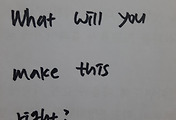 What will you
make this
right?